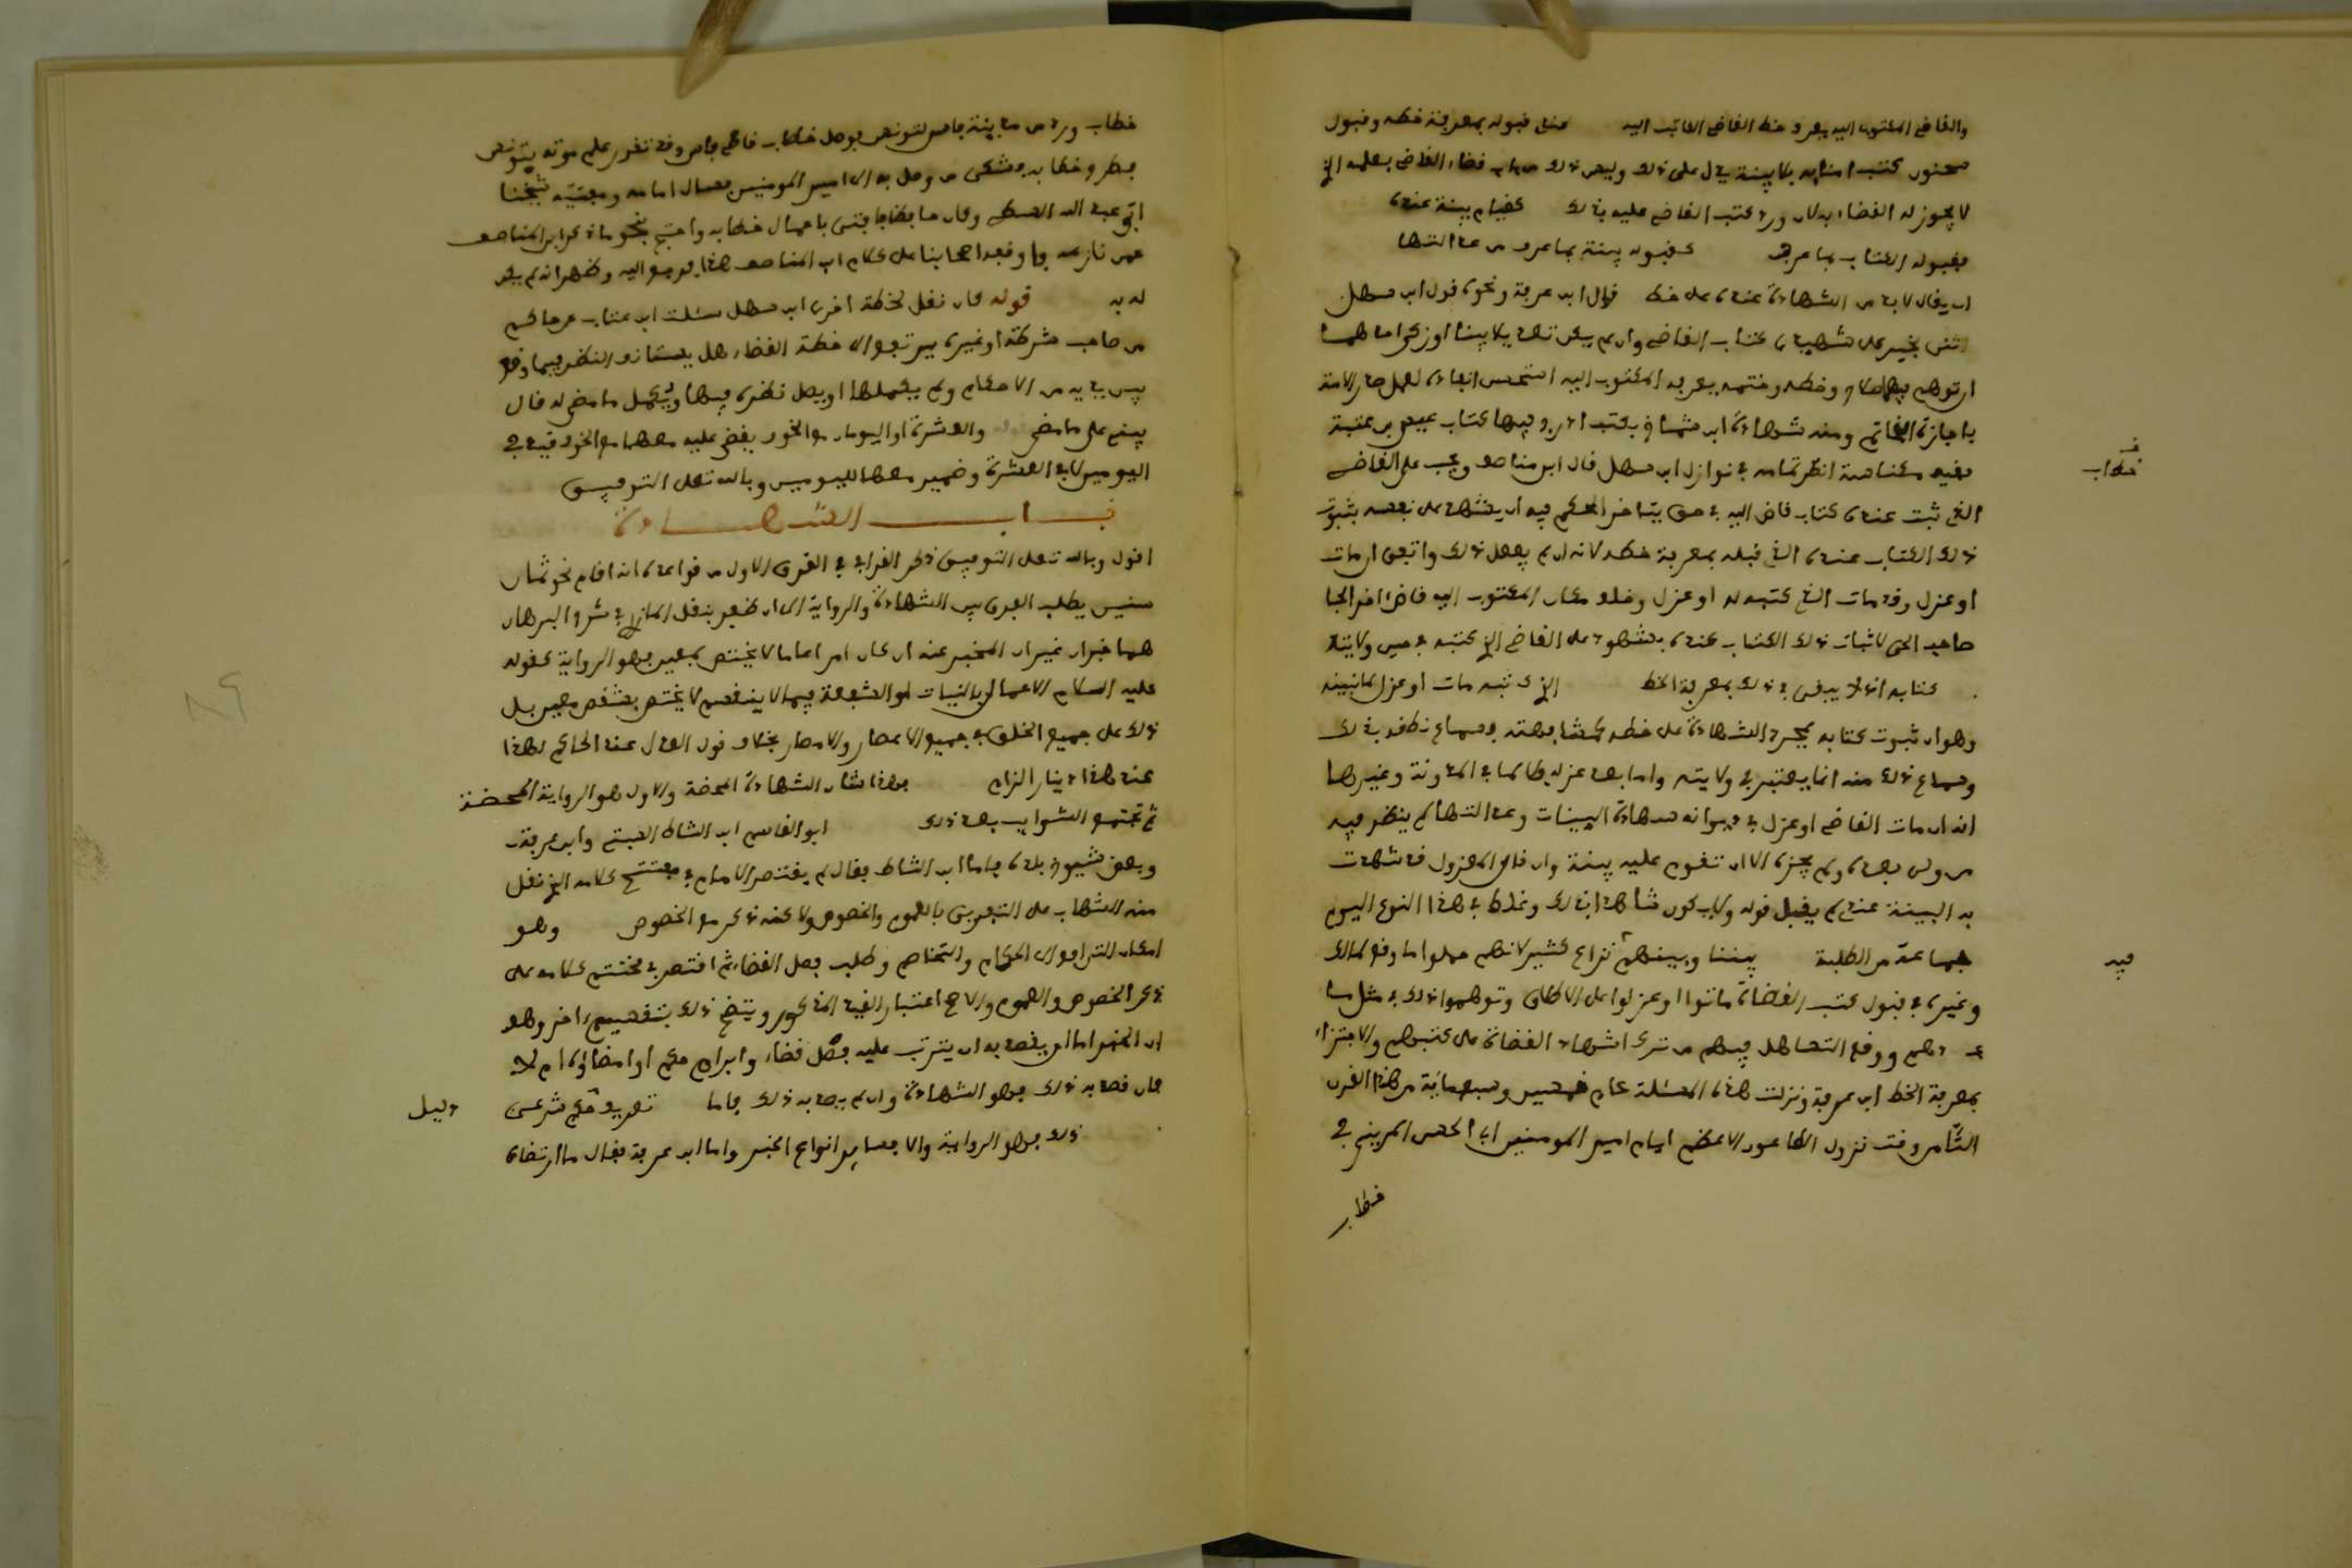 والقاضي المكتوب اليه يعرف خط القاضي الكاتب اليه عندي قبوله بمعرفة خطه وقبول
سحنون كتب امنايه بلا بينة يدل على ذلك وليس ذلك من باب قضاء القاضي بعلمه الذي
لا يجوز له القضاء به لان ورود كتب القاضي عليه بذلك كقيام بينة عنده
فقبوله الكتاب بما عرف كقبوله بينة بما عرف من عدالتها
ان يقال لا بد من الشهادة عنده على خط قال ابن عرفة ونحوه قول ابن سهل
اثنى بخير على شهيدي كتاب القاضي وان لم يكن تعديلا بينا او زكى احدهما
او توسم فيهما صلاح وخطه وختمه يعرفه المكتوب اليه استحسن انفاذه لعمل صدر الامة
باجازة الخاتم ومنه شهادة ابن شماخ بكتب اخر وفيها كتاب عيسى بن عتبة
فقيه مكناسة انظر تمامه في نوازل ابن سهل قال ابن مناصف ويجب على القاضي
الذي ثبت عنده كتاب قاض اليه في حق يتاخر الحكم فيه ان يشهد على نفسه بثبوت
ذلك الكتاب عنده الذي قبله بمعرفة خطه لانه ان لم يفعل ذلك واتفق ان مات
او عزل وقد مات الذي كتبه له او عزل وخلف مكان المكتوب اليه قاض اخر الجا
صاحب الحق لاثبات ذلك الكتاب عنده بشهود على القاضي الذي كتبه في حين ولايته
كتابه اذ لا يكفي في ذلك بمعرفة الخط الذي كتبه مات او عزل
وهو ان ثبوت كتابه بمجرد الشهادة على خطه كمشافهته وسماع نطقه بذلك
وسماع ذلك منه انما يعتبر في ولايته واما بعد عزله فلا لما في المدونة وغيرها
انه ان مات القاضي او عزل في ديوانه شهادة البينات وعدالتها لم ينظر فيه
من ولي بعده ولم يجزه الا ان تقوم عليه بينة وان قال المعزول قد شهدت
به البينة عندي لم يقبل قوله ولا يكون شاهدا بذلك وغلط في هذا النوع اليوم
جماعة من الطلبة بيننا وبينهم نزاع كثير لانهم حملوا ما وقع لمالك
وغيره في قبول كتب القضاة ماتوا او عزلوا على الاطلاق وتوهموا ذلك في مثل
ووقع التساهل فيهم من ترك اشهاد القضاة على كتبهم والاجتزاء
بمعرفة الخط ابن عرفة ونزلت هذه المسئلة عام خمسين وسبعمائة من هذا القرن
الثامن وقت نزول الطاعون الاعظم ايام امير المومنين ابي الحسن المريني في
خطاب
خطاب
فيه
خطاب ورد من مدينة فاس لتونس فوصل خطاب قاضي فاس وقد تقرر علم موته بتونس
فطرح خطابه فشكى من وصل به الى امير المومنين فسال امامه ومفتيه شيخنا
ابي عبد الله السطي وكان حافظا فافتى باعمال خطابه واحتج بنحو ما ذكر ابن المناصف
عمن نازعه واوقف اصحابنا على كلام ابن المناصف هذا فرجع اليه وظهر انه لم يكن
له به قوله كان نقل لخطة اخرى ابن سهل سئلت ابن عتاب عن حاكم
من صاحب شرطة او غيره يرتفع الى خطة القضاء هل يستانف النظر فيما وقع
بين يديه من الاحكام ولم يكملها او يصل نظره فيها ويكمل ما مضى له قال
يبني على ما مضى والعشرة او اليومان مع الخوف يقضى عليه معهما مع الخوف قيد في
اليومين لا في العشرة وضمير معهما لليومين وبالله تعلى التوفيق
باب الشهادة
اقول وبالله تعلى التوفيق ذكر القرافي في الفرق الاول من قواعده انه اقام نحو ثمان
سنين يطلب الفرق بين الشهادة والرواية الى ان ظفر بنقل المازري في شرح البرهان
هما خبران غير ان المخبر عنه ان كان امرا عاما لا يختص بمعين فهو الرواية كقوله
عليه السلام الاعمال بالنيات او الشفعة فيما لا ينقسم لا يختص بشخص معين بل
ذلك على جميع الخلق في جميع الاعصار والامصار بخلاف قول العدل عند الحاكم لهذا
عند هذا دينار الزام فهذا شان الشهادة المحضة والاول هو الرواية المحضة
ثم تجتمع الشوايب بعد ذلك ابو القاسم ابن الشاط السبتي وابن عرفة
وبعض شيوخ بلده فاما ابن الشاط فقال لم يقتصر الامام في مفتتح كلامه الذي نقل
منه الشهاب على التفريق بالعموم والخصوص ولاكنه ذكر مع الخصوص وهو
امكان الترافع الى الحكام والتخاصم وطلب فصل القضاء ثم اقتصر في مختتم كلامه على
ذكر الخصوص والعموم والاصح اعتبار القيد المذكور ويتضح ذلك بتقسيم اخر وهو
ان الخبر اما ان يقصد به ان يترتب عليه فصل قضاء وابرام حكم او امضاؤه ام لا
فان قصد به ذلك فهو الشهادة وان لم يقصد به ذلك فاما تعريف حكم شرعي
ذلك فهو الرواية والا فساير انواع الخبر واما ابن عرفة فقال ما ارتضاه
دليل